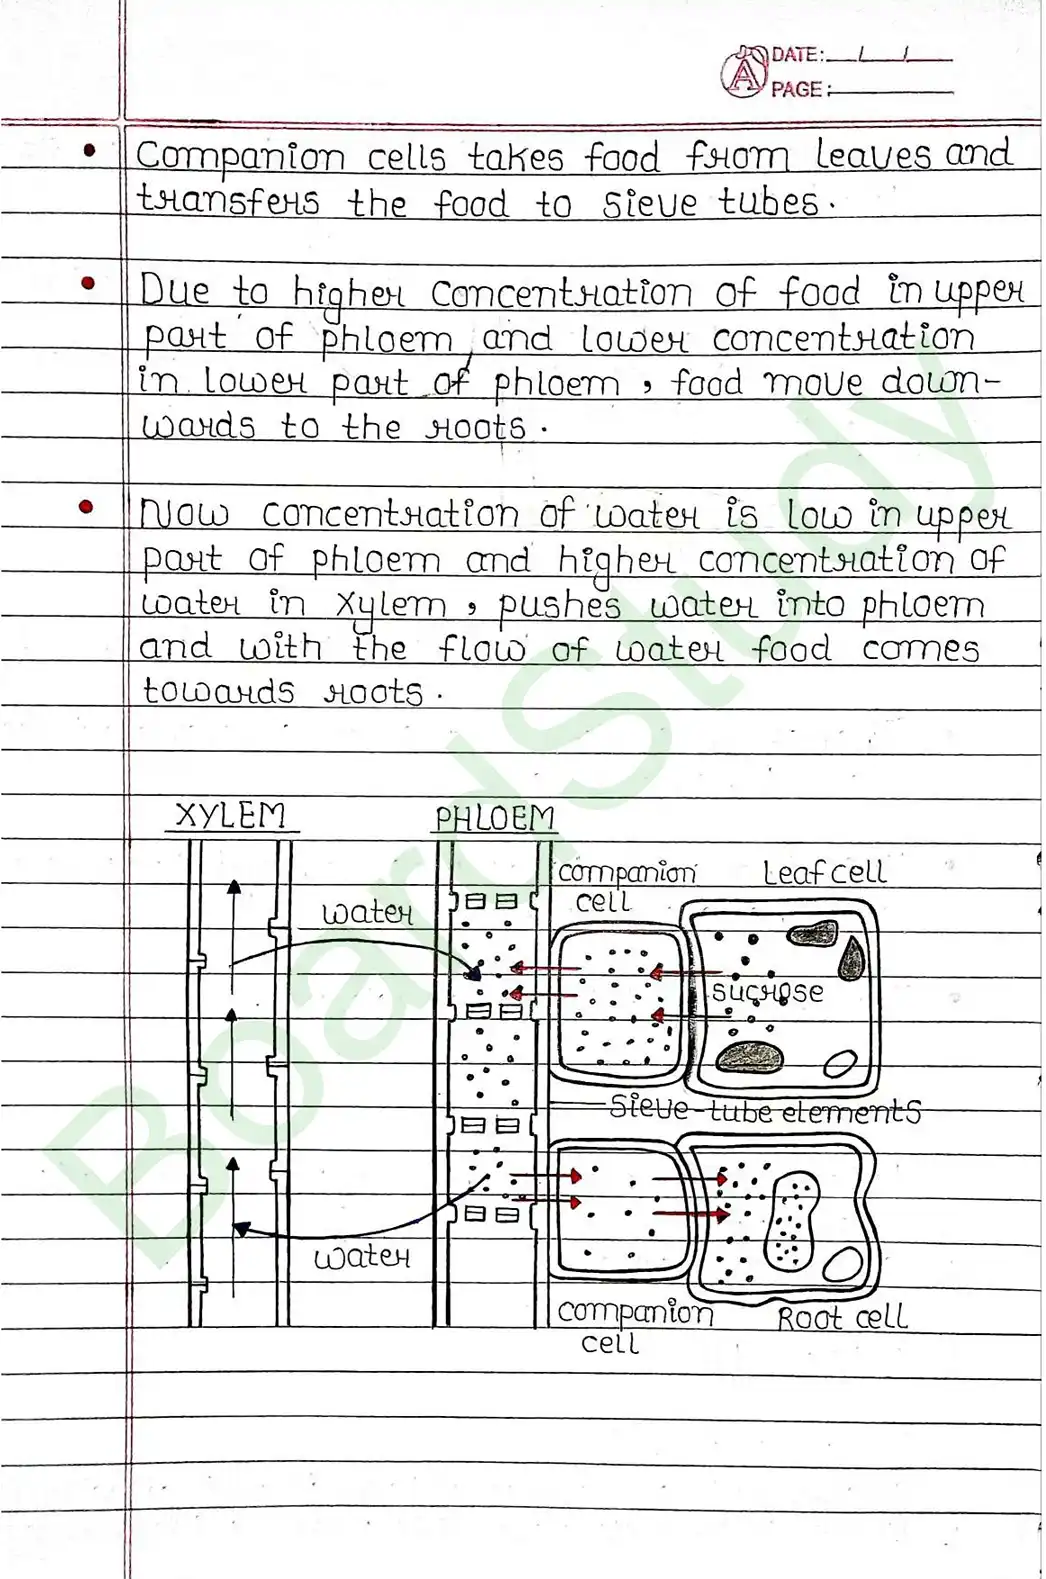 DATE:
PAGE:
Companion cells takes food from leaves and
transfers the food to sieve tubes.
Due to higher concentration of food in upper
part of phloem, and lower concentration
in lower part of phloem, food move down-
wards to the roots.
Now concentration of water is low in upper
part of phloem and higher concentration of
water in xylem, pushes water into phloem
and with the flow of water food comes
towards roots.
XYLEM
PHLOEM
water
companion
cell
Leaf cell
sucrose
sieve-tube elements
water
companion
cell
Root cell
BoardStudy